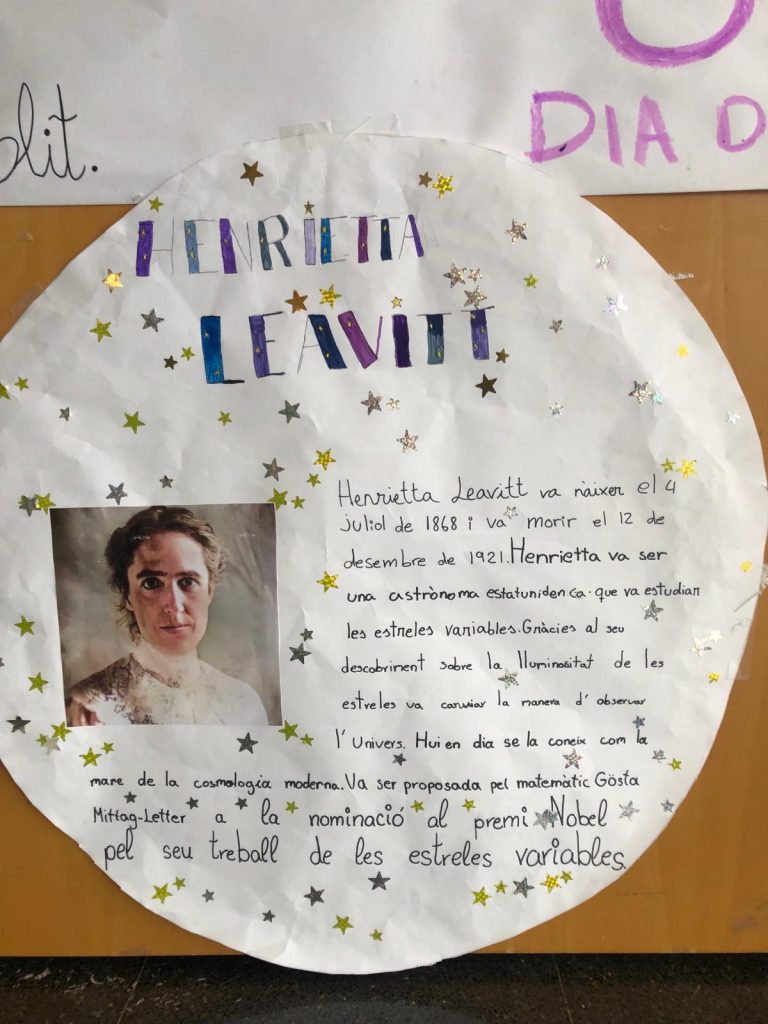 olit.
DIA D
HENRIETTA
LEAVITT
Henrietta Leavitt va nàixer el 4
juliol de 1868 i va morir el 12 de
desembre de 1921. Henrietta va ser
una astrònoma estatunidenca que va estudiar
les estreles variables. Gràcies al seu
descobriment sobre la lluminositat de les
estreles va canviar la manera d'observar
l'Univers. Hui en dia se la coneix com la
mare de la cosmologia moderna. Va ser proposada pel matemàtic Gösta
Mittag-Letter a la nominació al premi Nobel
pel seu treball de les estreles variables.